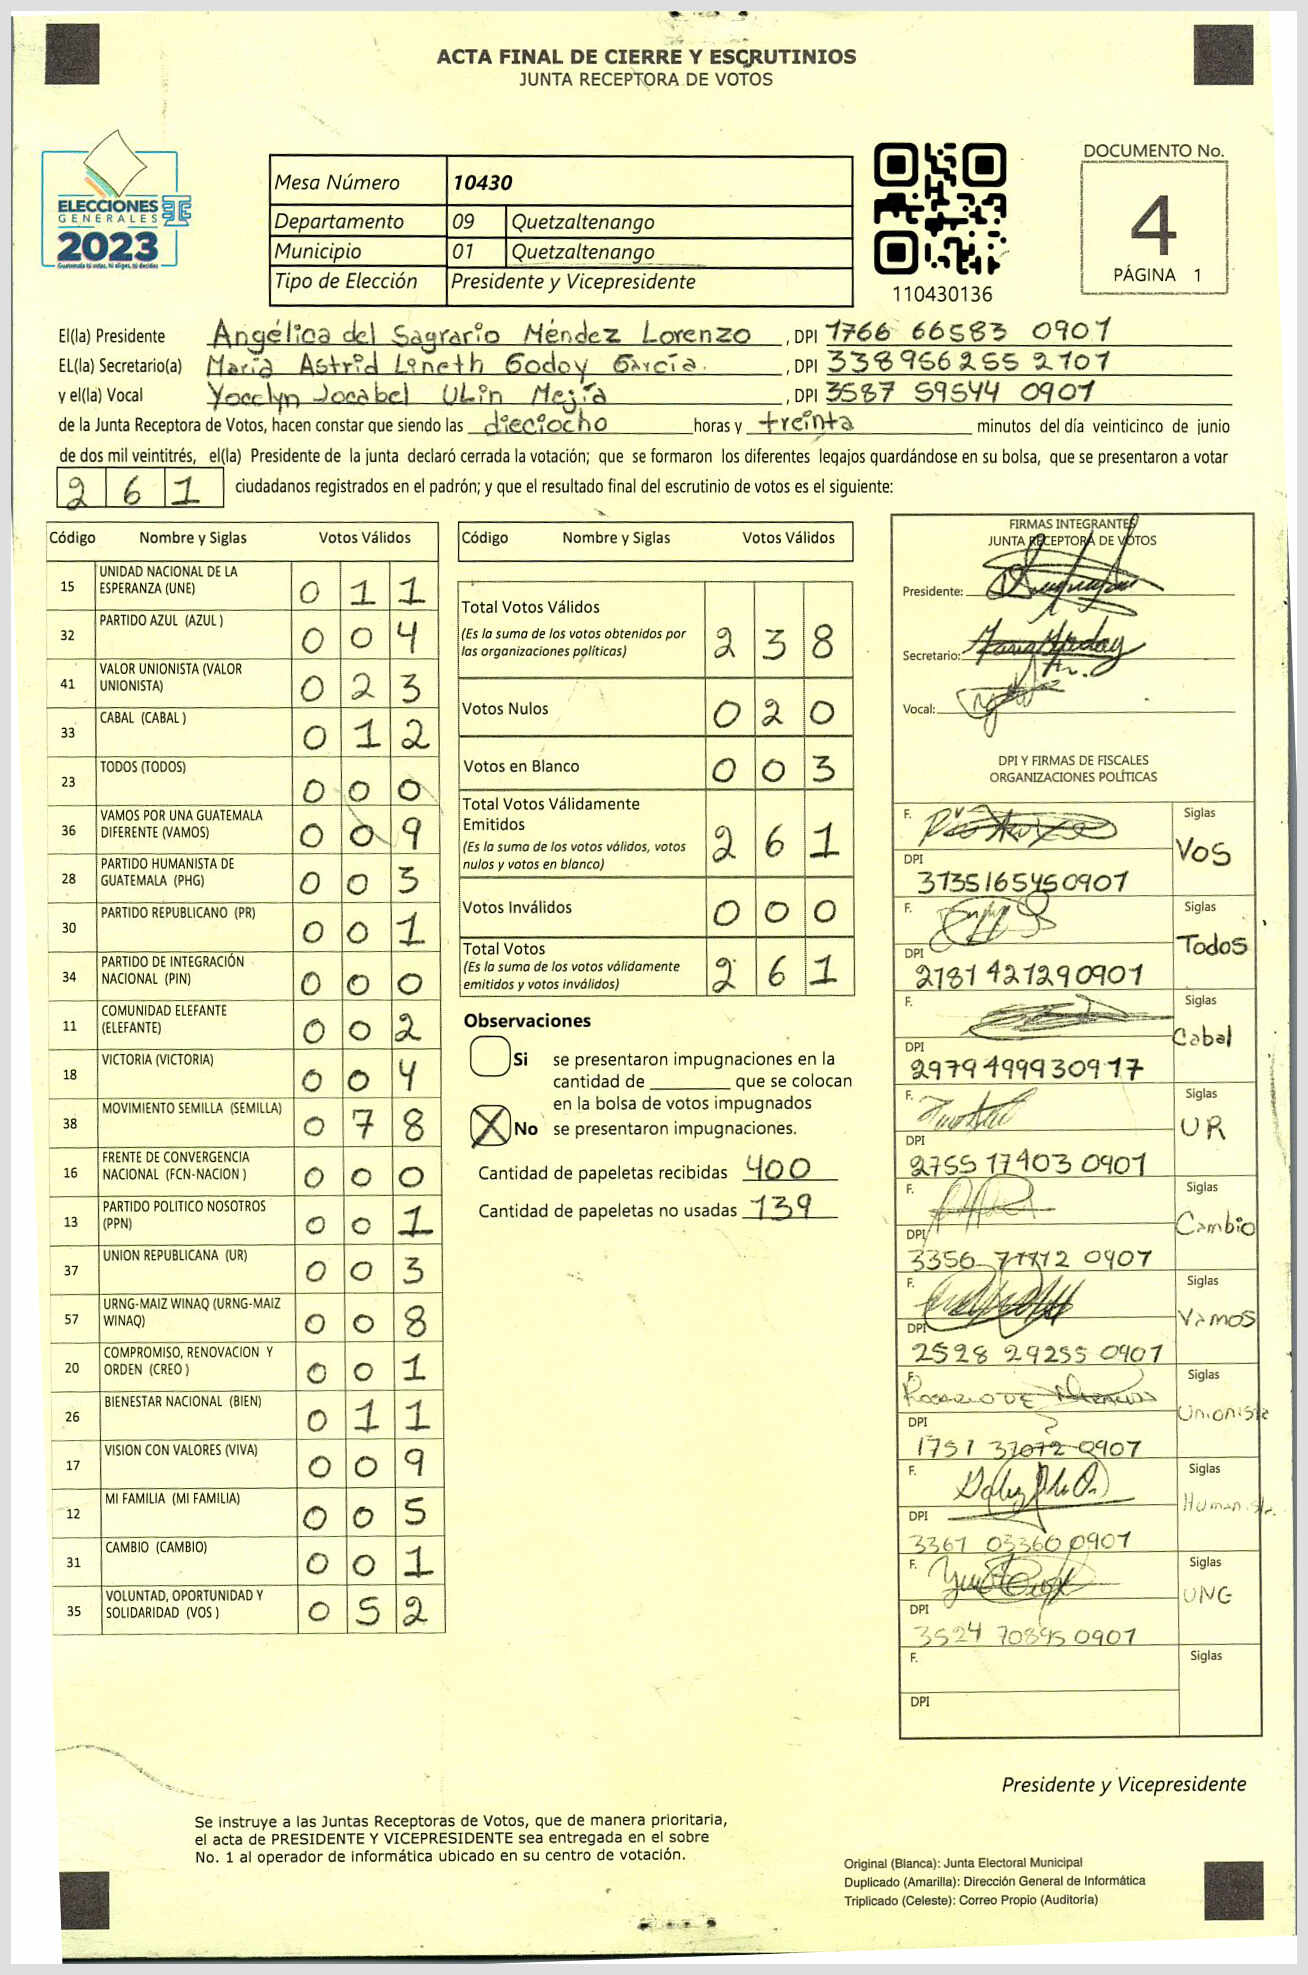 ACTA FINAL DE CIERRE Y ESCRUTINIOS
JUNTA RECEPTORA DE VOTOS
ELECCIONES
GENERALES
2023
Guatemala tú votas, tú eliges, tú decides
Mesa Número 10430
Departamento 09 Quetzaltenango
Municipio 01 Quetzaltenango
Tipo de Elección Presidente y Vicepresidente
110430136
DOCUMENTO No.
4
PÁGINA 1
El(la) Presidente Angélica del Sagrario Méndez Lorenzo, DPI 1766 66583 0901
EL(la) Secretario(a) María Astrid Lineth Godoy García., DPI 338956255 2101
y el(la) Vocal Yocelyn Jocabel ULin Mejía, DPI 3587 59544 0901
de la Junta Receptora de Votos, hacen constar que siendo las dieciocho horas y treinta minutos del día veinticinco de junio
de dos mil veintitrés, el(la) Presidente de la junta declaró cerrada la votación; que se formaron los diferentes legajos guardándose en su bolsa, que se presentaron a votar
261 ciudadanos registrados en el padrón; y que el resultado final del escrutinio de votos es el siguiente:
Código Nombre y Siglas Votos Válidos
15 UNIDAD NACIONAL DE LA ESPERANZA (UNE) 0 1 1
32 PARTIDO AZUL (AZUL ) 0 0 4
41 VALOR UNIONISTA (VALOR UNIONISTA) 0 2 3
33 CABAL (CABAL ) 0 1 2
23 TODOS (TODOS) 0 0 0
36 VAMOS POR UNA GUATEMALA DIFERENTE (VAMOS) 0 0 9
28 PARTIDO HUMANISTA DE GUATEMALA (PHG) 0 0 3
30 PARTIDO REPUBLICANO (PR) 0 0 1
34 PARTIDO DE INTEGRACIÓN NACIONAL (PIN) 0 0 0
11 COMUNIDAD ELEFANTE (ELEFANTE) 0 0 2
18 VICTORIA (VICTORIA) 0 0 4
38 MOVIMIENTO SEMILLA (SEMILLA) 0 7 8
16 FRENTE DE CONVERGENCIA NACIONAL (FCN-NACION ) 0 0 0
13 PARTIDO POLITICO NOSOTROS (PPN) 0 0 1
37 UNION REPUBLICANA (UR) 0 0 3
57 URNG-MAIZ WINAQ (URNG-MAIZ WINAQ) 0 0 8
20 COMPROMISO, RENOVACION Y ORDEN (CREO ) 0 0 1
26 BIENESTAR NACIONAL (BIEN) 0 1 1
17 VISION CON VALORES (VIVA) 0 0 9
12 MI FAMILIA (MI FAMILIA) 0 0 5
31 CAMBIO (CAMBIO) 0 0 1
35 VOLUNTAD, OPORTUNIDAD Y SOLIDARIDAD (VOS ) 0 5 2
Código Nombre y Siglas Votos Válidos
Total Votos Válidos
(Es la suma de los votos obtenidos por
las organizaciones políticas) 2 3 8
Votos Nulos 0 2 0
Votos en Blanco 0 0 3
Total Votos Válidamente
Emitidos
(Es la suma de los votos válidos, votos
nulos y votos en blanco) 2 6 1
Votos Inválidos 0 0 0
Total Votos
(Es la suma de los votos válidamente
emitidos y votos inválidos) 2 6 1
Observaciones
Si se presentaron impugnaciones en la
cantidad de ________ que se colocan
en la bolsa de votos impugnados
X No se presentaron impugnaciones.
Cantidad de papeletas recibidas 400
Cantidad de papeletas no usadas 139
FIRMAS INTEGRANTES
JUNTA RECEPTORA DE VOTOS
Presidente:
Secretario:
Vocal:
DPI Y FIRMAS DE FISCALES
ORGANIZACIONES POLÍTICAS
F. Siglas VOS
DPI 3135165450901
F. Siglas Todos
DPI 2181 421290901
F. Siglas Cabal
DPI 2979499930917
F. Siglas UR
DPI 2755 17403 0901
F. Siglas Cambio
DPI 3356 0907
F. Siglas Vamos
DPI 2528 29255 0901
F. Siglas Unionista
DPI 1751 37072 0907
F. Siglas Humanista
DPI 3361 03360 0901
F. Siglas UNE
DPI 3524 70895 0901
F. Siglas
DPI
Presidente y Vicepresidente
Se instruye a las Juntas Receptoras de Votos, que de manera prioritaria,
el acta de PRESIDENTE Y VICEPRESIDENTE sea entregada en el sobre
No. 1 al operador de informática ubicado en su centro de votación.
Original (Blanca): Junta Electoral Municipal
Duplicado (Amarilla): Dirección General de Informática
Triplicado (Celeste): Correo Propio (Auditoría)